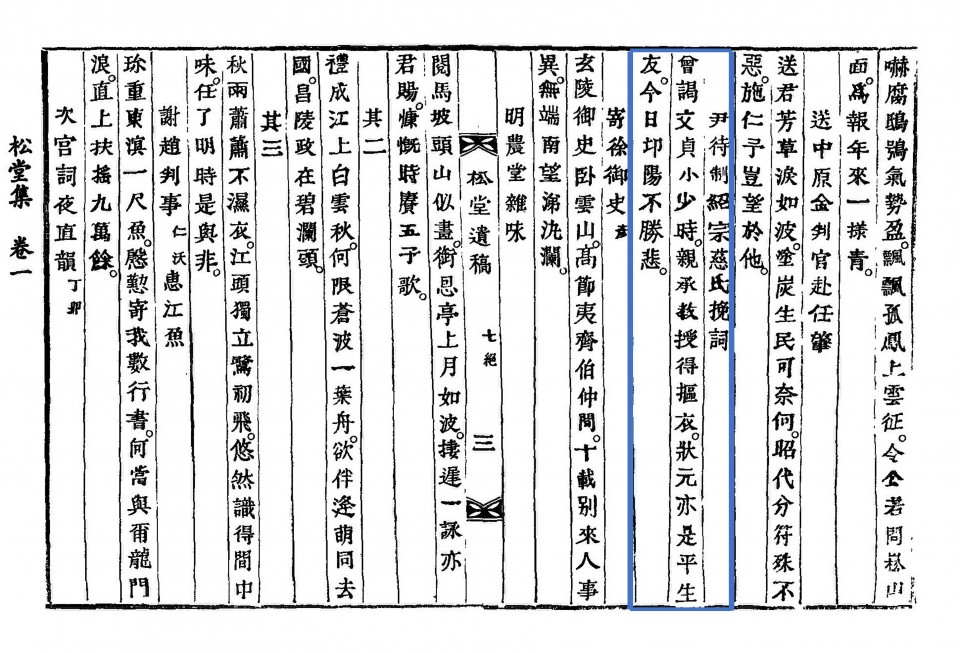 嚇腐鴟鴞氣勢盈。飄飄孤鳳上雲征。令公若問松山
面。爲報年來一㨾靑。
送中原金判官赴任肇
送君芳草淚如波。塗炭生民可奈何。昭代分符殊不
惡。施仁予豈望於他。
尹待制紹宗慈氏挽詞
曾謁文貞小少時。親承敎授得摳衣。狀元亦是平生
友。今日卭陽不勝悲。
寄徐御史
玄陵御史卧雲山。高節夷齊伯仲間。十載别來人事
異。無端南望涕汍瀾。
明農堂雜味
松堂遺稿 七絕 三
閱馬坡頭山似畫。銜恩亭上月如波。捿遲一詠亦
君賜。慷慨時賡五子歌。
其二
禮成江上白雲秋。何限蒼波一葉舟。欲伴逄萌同去
國。昌陵政在碧瀾頭。
其三
秋雨蕭蕭不濕衣。江頭獨立鷺初飛。悠然識得間中
味。任了明時是與非。
謝趙判事 仁沃 惠江魚
珎重東溟一尺魚。慇懃寄我數行書。何當與甭龍門
浪。直上扶搖九萬餘。
次宮詞夜直韻 丁卯
松堂集 卷一